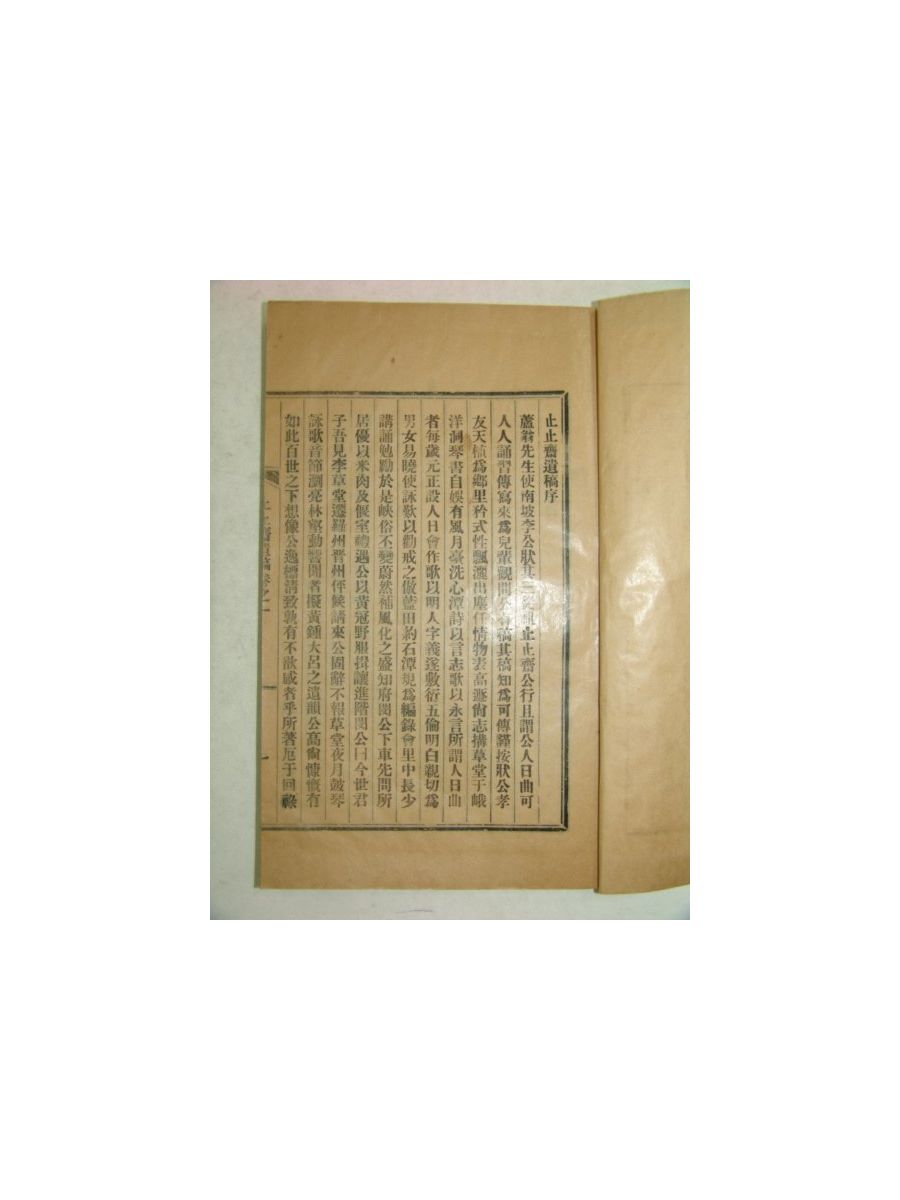 止止齋遺稿序
蘆翁先生使南坡李公狀其三從祖止止齋公行且謂公人日曲可
人人誦習傳寫來爲兒輩觀聞公有稿其稿知爲可傳謹按狀公孝
友天植爲鄉里矜式性飄灑出塵任情物表高遯尙志搆草堂于峨
洋洞琴書自娛有風月臺洗心潭詩以言志歌以永言所謂人日曲
者每歲元正設人日會作歌以明人字義遂敷衍五倫明白親切爲
男女易曉使詠歎以勸戒之倣藍田約石潭規爲編錄會里中長少
講誦勉勵於是峽俗丕變蔚然補風化之盛知府閔公下車先問所
居優以米肉及偃室禮遇公以黃冠野服揖讓進階閔公曰今世君
子吾見李草堂遷羅州晋州伻候請來公固辭不報草堂夜月鼓琴
詠歌音節瀏亮林壑動響聞者擬黃鍾大呂之遺韻公高尙慷慨有
如此百世之下想像公逸標淸致孰有不欲咸者乎所著厄于回祿
止止齋遺稿卷之一
一